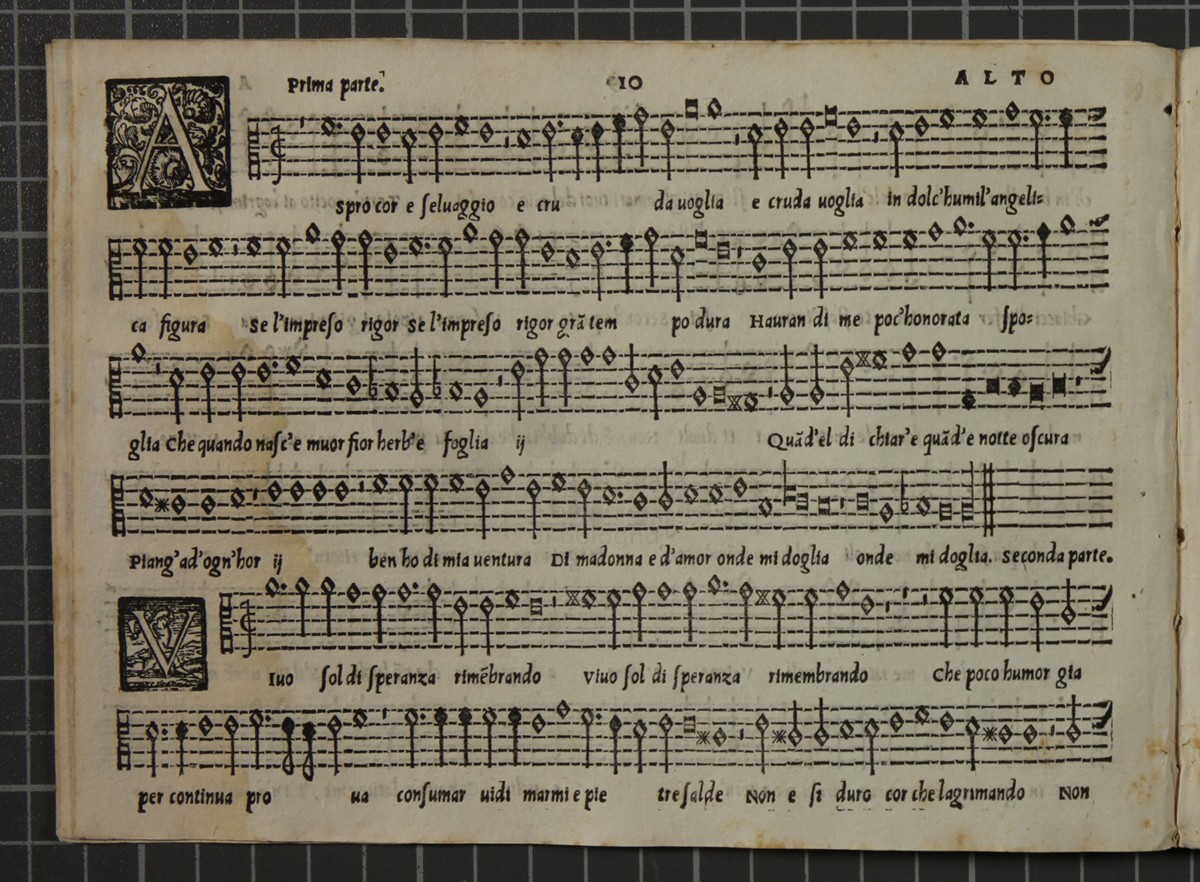 Prima parte. 10 ALTO
A spro cor e seluaggio e cru da uoglia e cruda uoglia in dolc'humil'angeli=
ca figura se l'impreso rigor se l'impreso rigor grā tem po dura Hauran di me poc'honorata spo=
glia Che quando nasc'e muor fior herb'e foglia ij Quād'el di chiar'e quād'e notte oscura
Piang'ad'ogn'hor ij ben ho di mia uentura Di madonna e d'amor onde mi doglia onde mi doglia. seconda parte.
V Iuo sol di speranza rimēbrando Viuo sol di speranza rimembrando Che poco humor gia
per continua pro ua consumar uidi marmi e pie tre salde Non e si duro cor che lagrimando Non